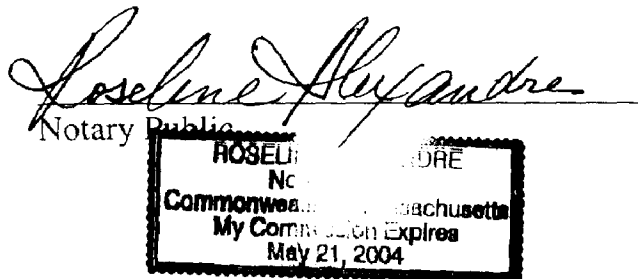 Roseline Alexandre
Notary Public
Commonwea... ...sachusetts
My Commission Expires
May 21, 2004